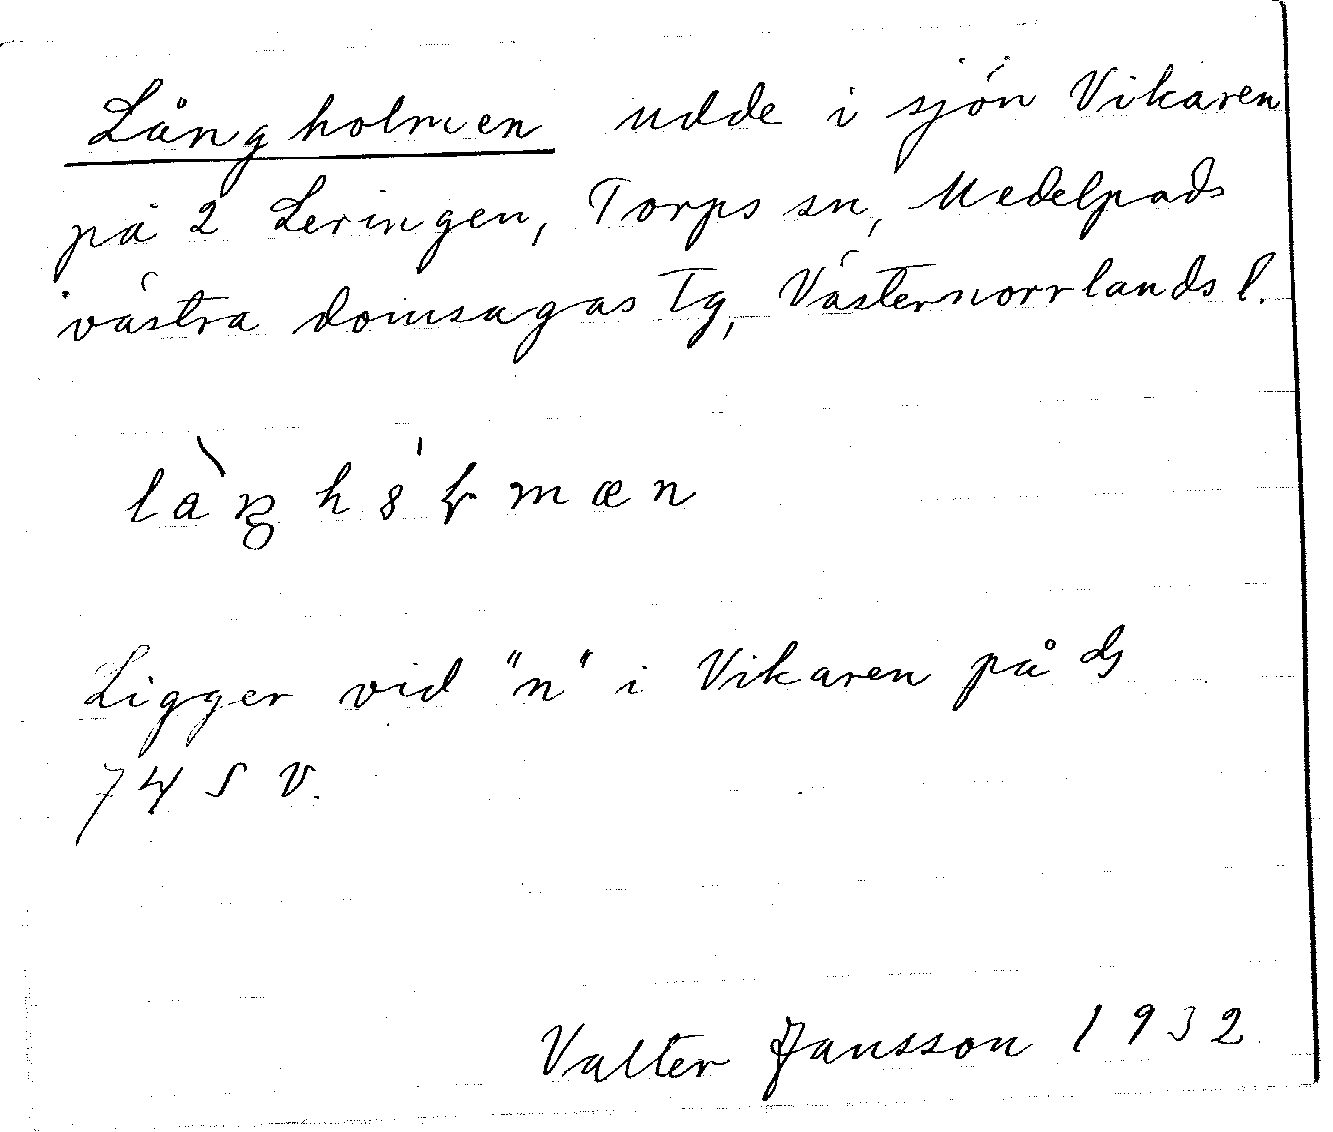 Långholmen udde i sjön Vikaren
på 2 Leringen, Torps sn, Medelpads
västra domsagas Tg, Västernorrlands l.
Ligger vid "n" i Vikaren på
74 S V.
Valter Jansson 1932